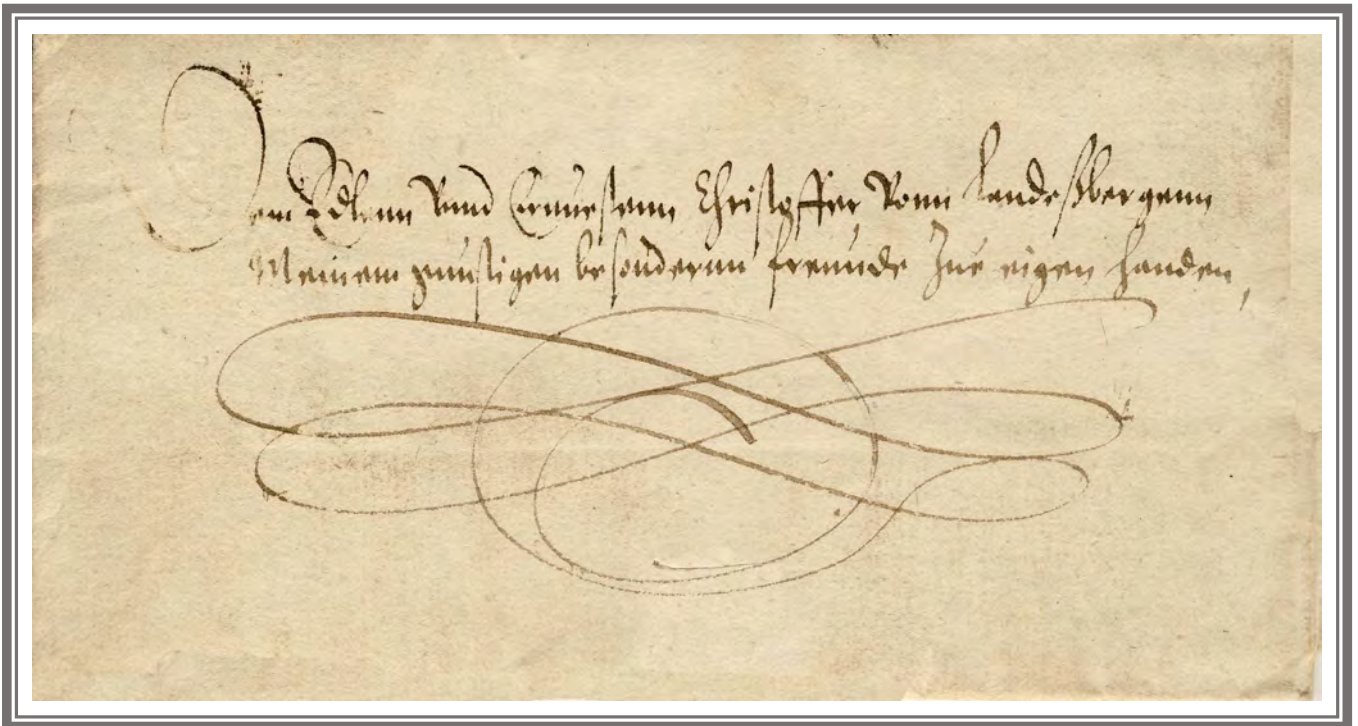 Dem Edlenn Vnnd Ernuestenn Christoffer, Vonn Landeßbergenn
Meinem gunstigen besondernn freunde Zue eigen handen,